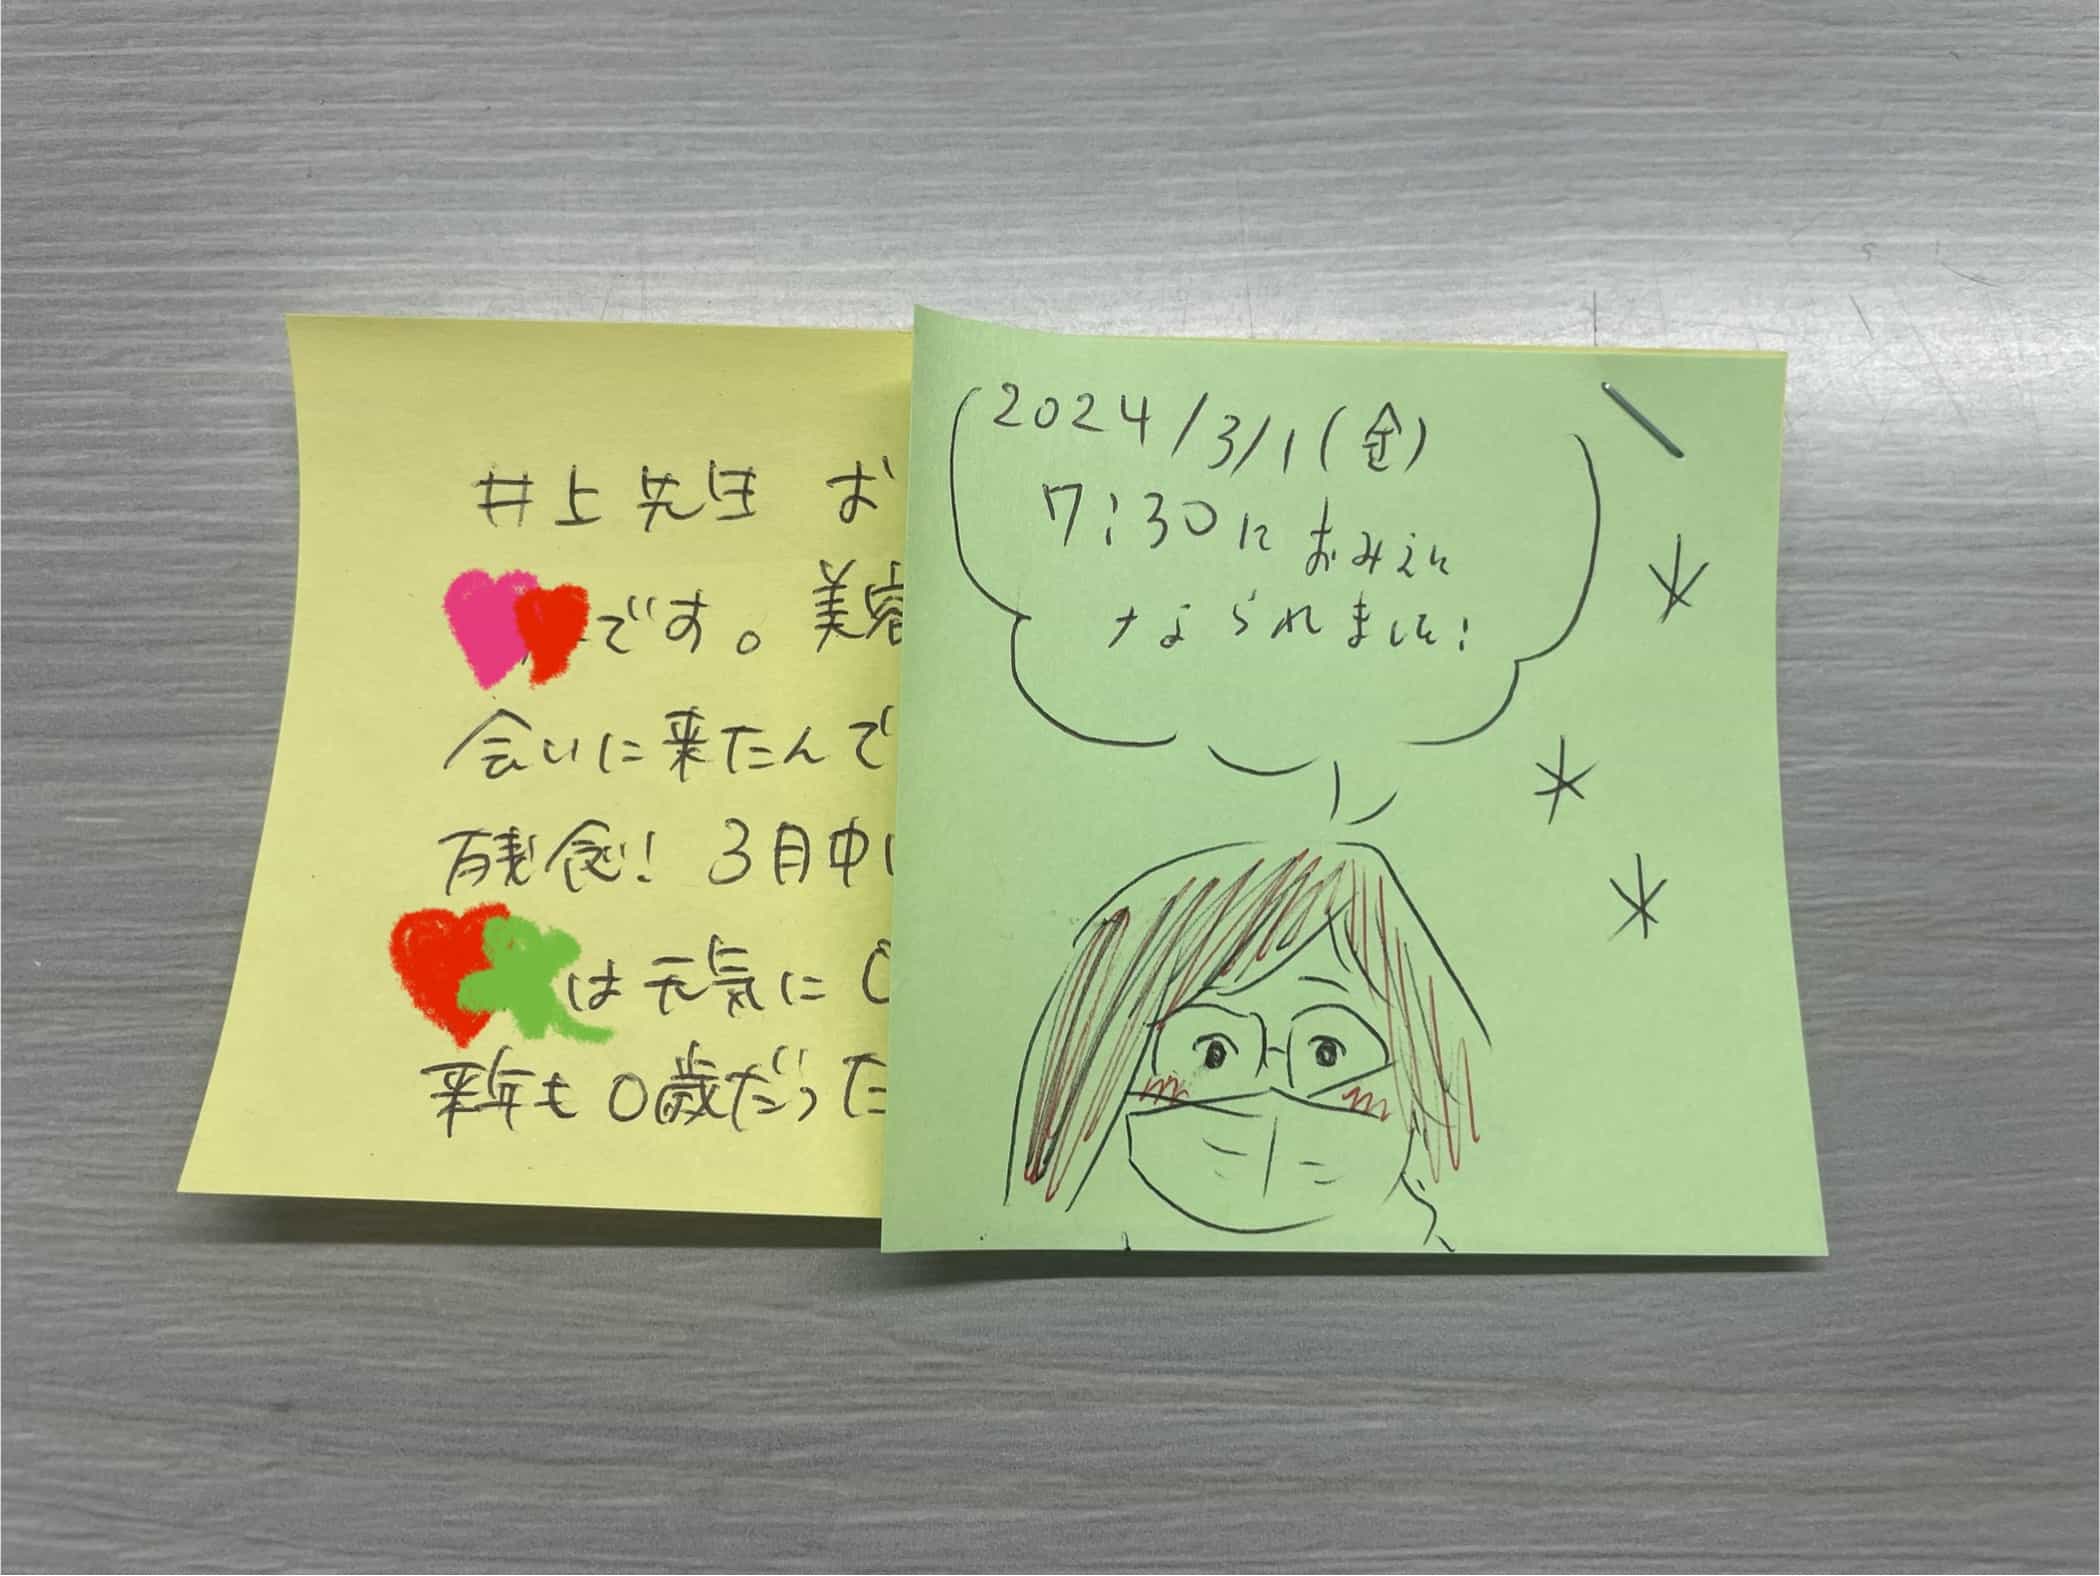 井上先生 お
です。美容
会いに来たんで
残念！3月中に
は元気に
来年も0歳だった
2024/3/1(金)
7:30におみえに
なられました！